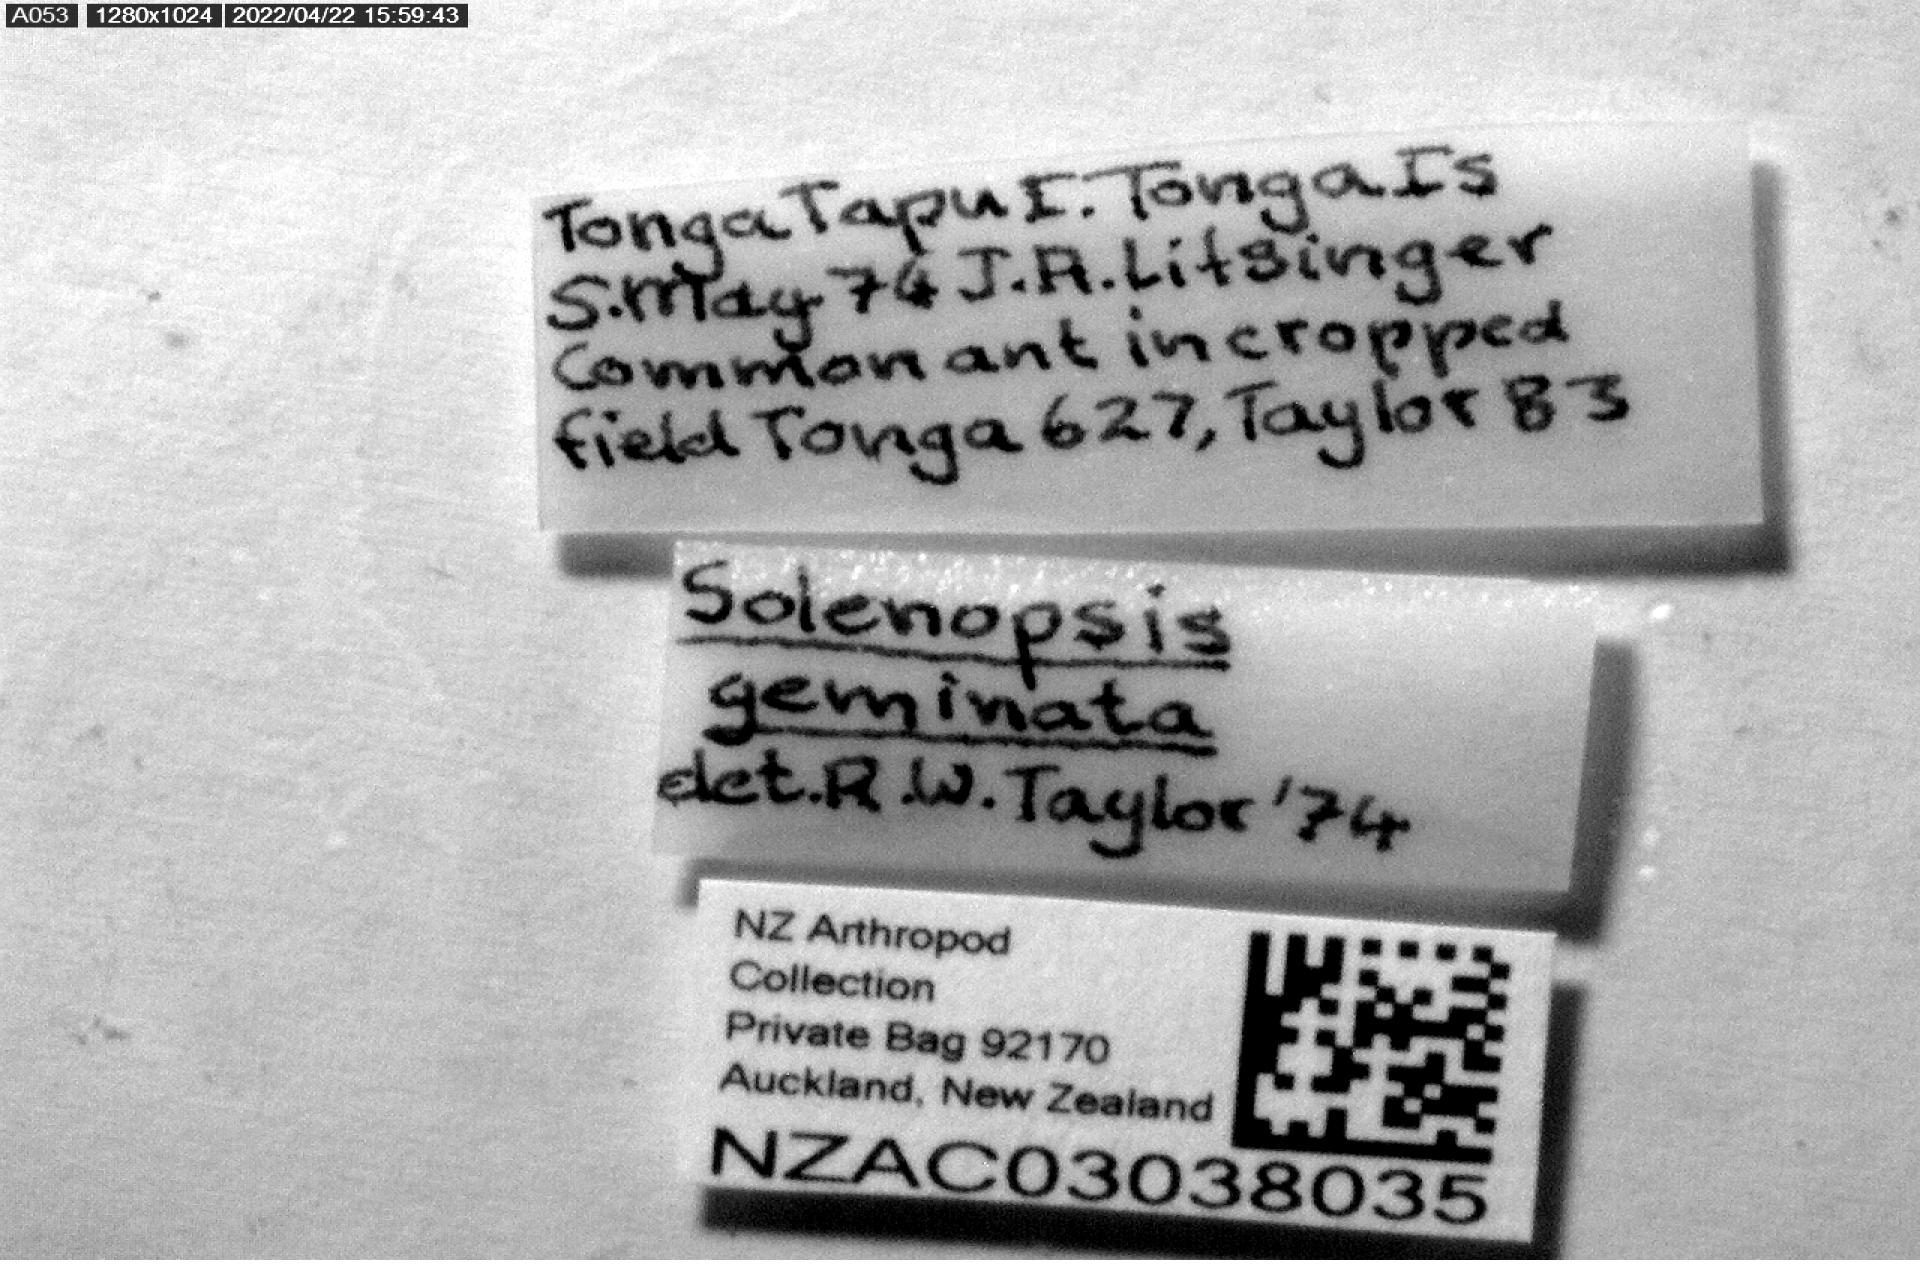 A053 1280x1024 2022/04/22 15:59:43
Tonga Tapu I. Tonga Is
S.May 74 J.R.Litsinger
Common ant in cropped
field Tonga 627, Taylor 83
Solenopsis
geminata
det. R.W. Taylor '74
NZ Arthropod
Collection
Private Bag 92170
Auckland, New Zealand
NZAC03038035